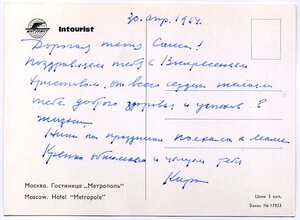 Intourist
30. апр. 1964.
Дорогая тетя Саша!
Поздравляем тебя с Воскресеньем
Христовым, от всего сердца желаем
тебе доброго здоровья и успехов в
жизни
Нина на праздники поехала к маме.
Крепко обнимаем и целуем тебя
Кира
Москва. Гостиница „Метрополь"
Moscow. Hotel "Metropole"
Цена 3 коп.
Заказ № 17923